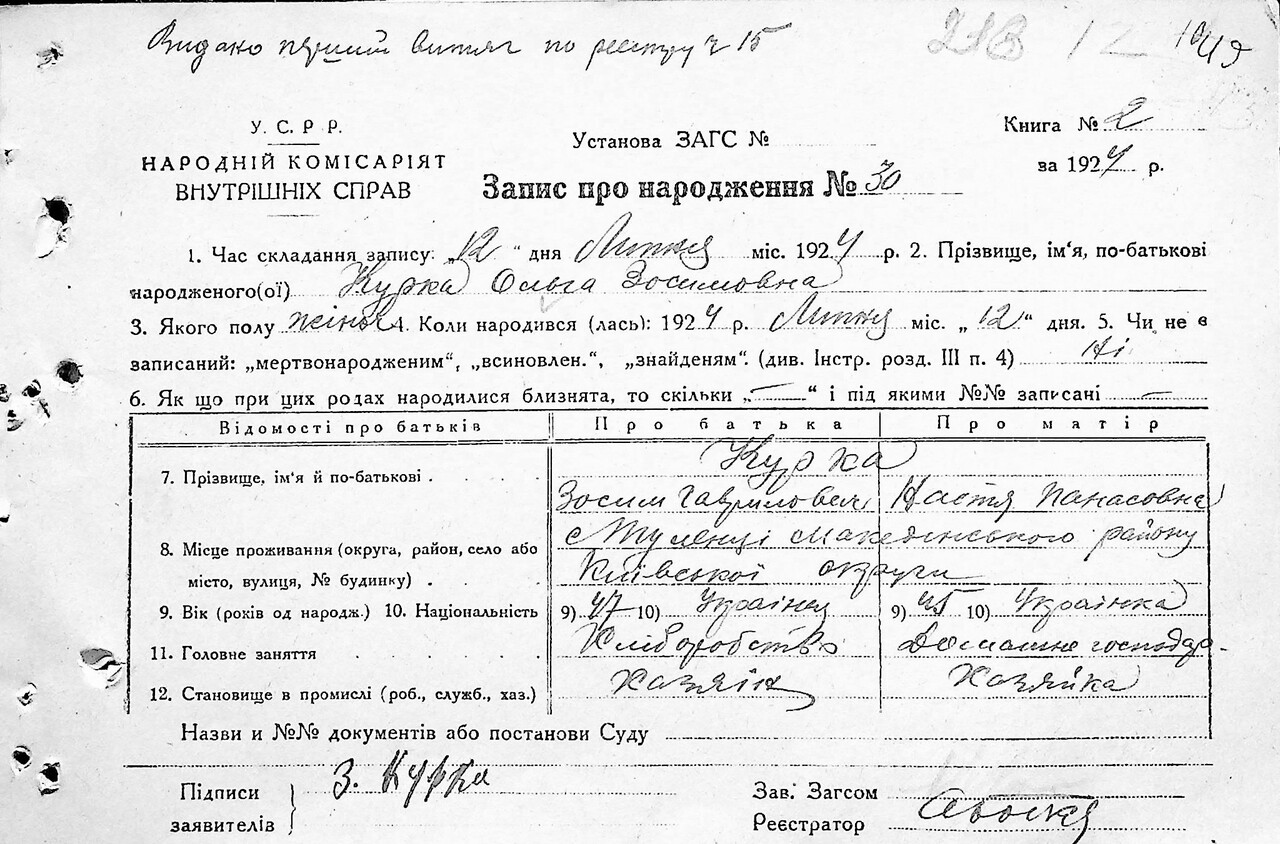 Видано перший витяг по реєстру ч 15
У. С. Р. Р.
НАРОДНІЙ КОМІСАРІЯТ
ВНУТРІШНІХ СПРАВ
Установа ЗАГС №
Книга № 2
за 1924 р.
Запис про народження № 30
1. Час складання запису: „12" дня Липня міс. 1924 р. 2. Прізвище, ім'я, по-батькові
народженого(ої) Курка Ольга Зосимовна
3. Якого полу жіноч 4. Коли народився (лась): 1924 р. Липня міс. „12" дня. 5. Чи не є
записаний: „мертвонародженим", „всиновлен.", „знайденям". (див. Інстр. розд. III п. 4) Ні
6. Як що при цих родах народилися близнята, то скільки „—" і під якими №№ записані —
Відомості про батьків Про батька Про матір
7. Прізвище, ім'я й по-батькові . . . . Курка
Зосим Гаврилович Настя Панасовна
8. Місце проживання (округа, район, село або місто, вулиця, № будинку) . . с Тулинці Македонського району
Київської округи
9. Вік (років од народж.) 10. Національність 9) 47 10) Українець 9) 45 10) Українка
11. Головне заняття . . . . . Хліборобство Домашнє господар.
12. Становище в промислі (роб., служб., хаз.) Хазяїн Хазяйка
Назви и №№ документів або постанови Суду
Підписи
заявителів
З. Курка
Зав. Загсом
Реєстратор